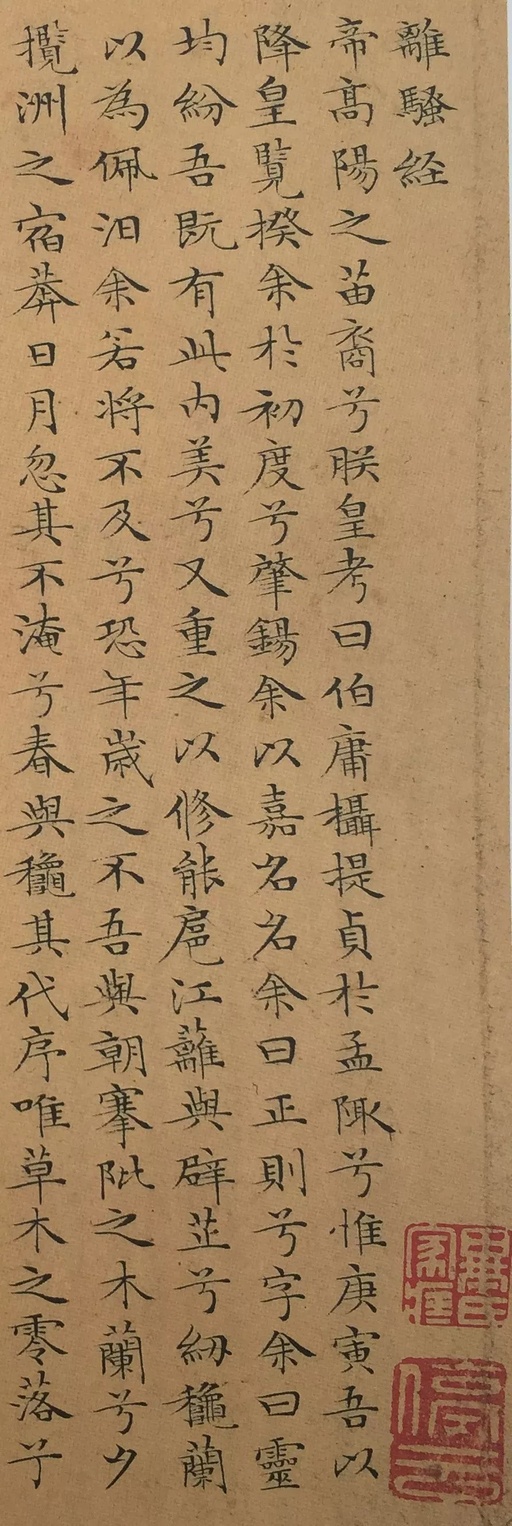 離騷経
帝髙陽之苗裔兮朕皇考曰伯庸攝提貞於孟陬兮惟庚寅吾以
降皇覽揆余於初度兮肇錫余以嘉名名余曰正則兮字余曰靈
均紛吾既有此内美兮又重之以修能扈江蘺與辟芷兮紉龝蘭
以為佩汩余若将不及兮恐年歳之不吾與朝搴阰之木蘭兮夕
攬洲之宿莽日月忽其不淹兮春與龝其代序唯草木之零落兮
停雲